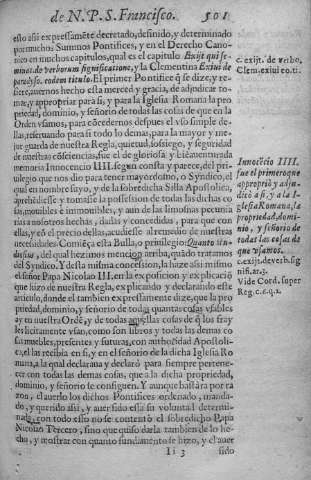 de N. P. S. Francisco. 501
esto assi expressamēte decretado, definido, y determinado
por muchos Summos Pontifices, y en el Derecho Cano-
nico en muchos capitulos, qual es el capitulo Exijt qui se-
minat de verborum significatione, y la Clementina Exiui de
paradyso. eodem titulo. El primer Pontifice q̄ se dize, y re-
fiere, auernos hecho esta merced y gracia, de adjudicar to-
mar, y appropriar para si, y para la Iglesia Romana la pro
piedad, dominio, y señorio de todas las cosas de que en la
Orden vsamos, para cōcedernos despues el vso simple de-
llas, reseruando para si todo lo demas, para la mayor y me-
jor guarda de nuestra Regla, quietud, sosiego, y seguridad
de nuestras cōsciencias, fue el de gloriosa y biēauenturada
memoria Innocencio IIII. segun consta y parece, del pri-
uilegio que nos dio para tener mayordomo, o Syndico, el
qual en nombre suyo, y de la sobredicha Silla Apostolica,
aprehēdiesse y tomasse la possession de todas las dichas co
sas, mouibles è immouibles, y aun de las limosnas pecunia
rias a nosotros hechas, dadas y concedidas, para que con
ellas, y cō el precio dellas, acudiesse al remedio de nuestras
necessidades. Comiēça esta Bulla, o priuilegio: Quanto stu-
diosius, del qual hezimos mencion arriba, quādo tratamos
del Syndico. Y desta misma concession, la haze assi mismo
el señor Papa Nicolao III. en la exposicion y explicació
que hizo de nuestra Regla, explicando y declarando este
articulo, donde el tambien expressamente dize, que la pro
piedad, dominio, y señorio de todas quantas cosas vsables
ay en nuestra Ordē, y de todas aquellas cosas de q̄ los fray
les licitamente vsan, como son libros y todas las demas co
sas muebles, presentes y suturas, con authoridad Apostoli-
ca, el las recibia en si, y en el señorio de la dicha Iglesia Ro
mana, a la qual declaraua y declarò para siempre pertene-
cer con todas las demas cosas, que a la dicha propriedad,
dominio, y señorio se consiguen. Y aunque bastàra por ra
zon, el auerlo los dichos Pontifices ordenado, manda-
do, y querido assi, y auer sido essa su voluntad determi-
nada, con todo esso no se contentò el sobredicho Papa
Nicolao Tercero, sino que quiso darla tambien de lo he-
cho, y mostrar con quanto fundamento se hizo, y el auer
Ii 3 sido
c. exijt. de verbo.
Clem. exiui eo. ti.
Innocēcio IIII.
fue el primero que
appropriò y adju-
dicò a si, y a la I-
glesia Romana, la
propriedad, domi-
nio, y señorio de
todas las cosas de
que vsamos.
c. exijt. de verb. sig
nifi. ar. 3.
Vide Cord. super
Reg. c. 6. q. 1.